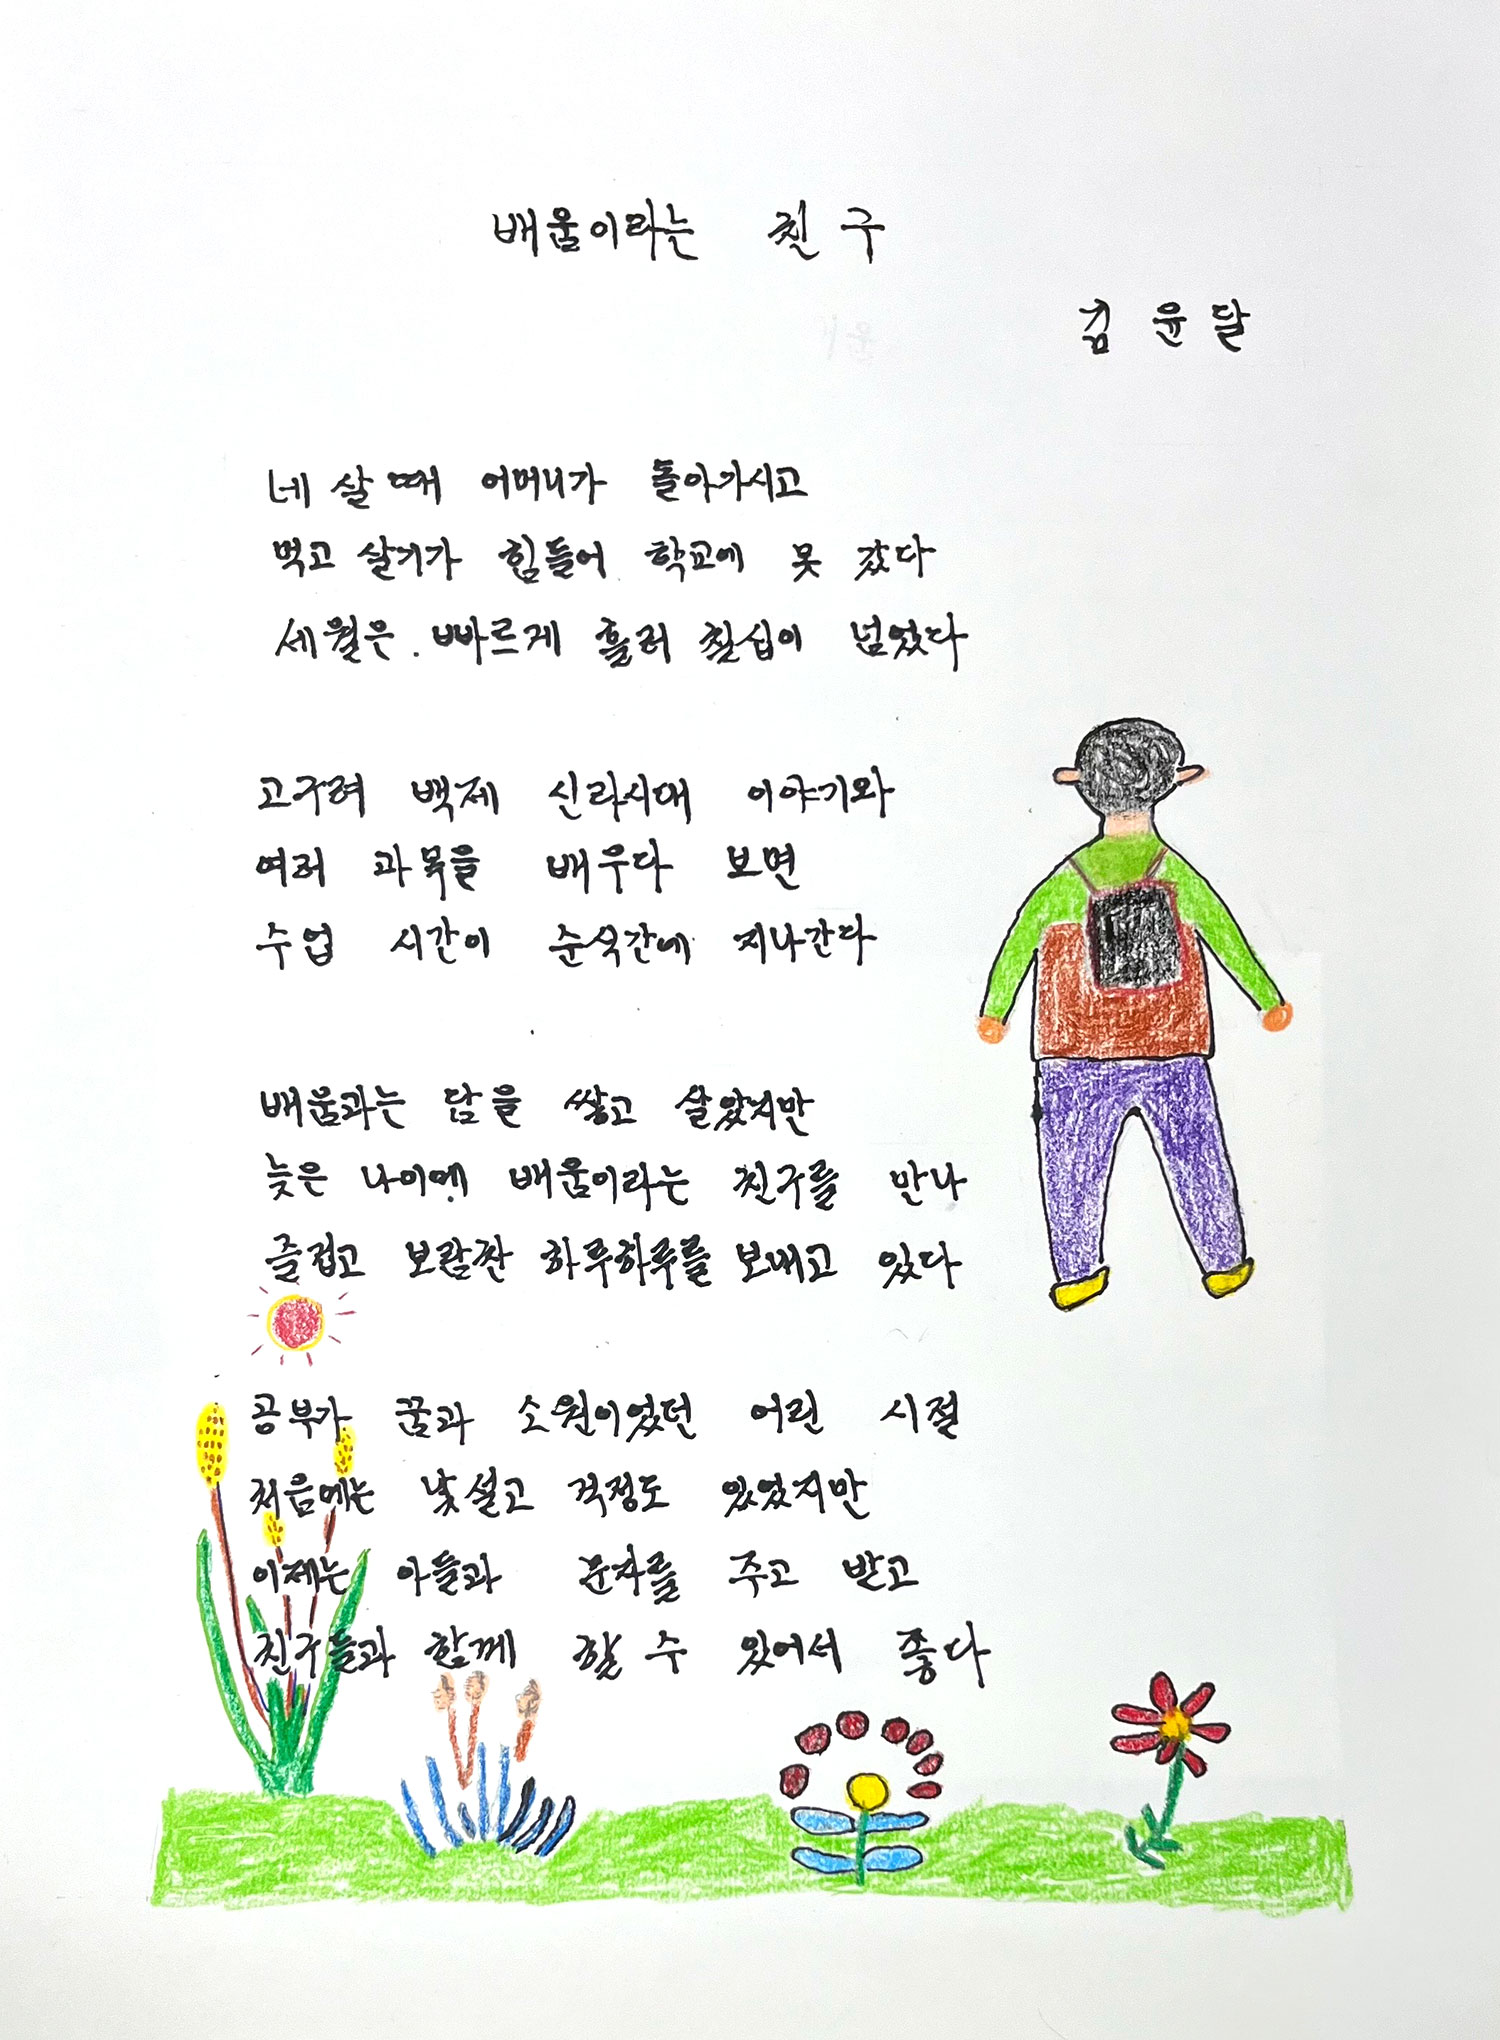 배움이라는 친구
김윤달
네 살 때 어머니가 돌아가시고
먹고 살기가 힘들어 학교에 못 갔다
세월은 빠르게 흘러 칠십이 넘었다
고구려 백제 신라시대 이야기와
여러 과목을 배우다 보면
수업 시간이 순식간에 지나간다
배움과는 담을 쌓고 살았지만
늦은 나이에 배움이라는 친구를 만나
즐겁고 보람찬 하루하루를 보내고 있다
공부가 꿈과 소원이었던 어린 시절
처음에는 낯설고 걱정도 있었지만
이제는 아들과 문자를 주고 받고
친구들과 함께 할 수 있어서 좋다